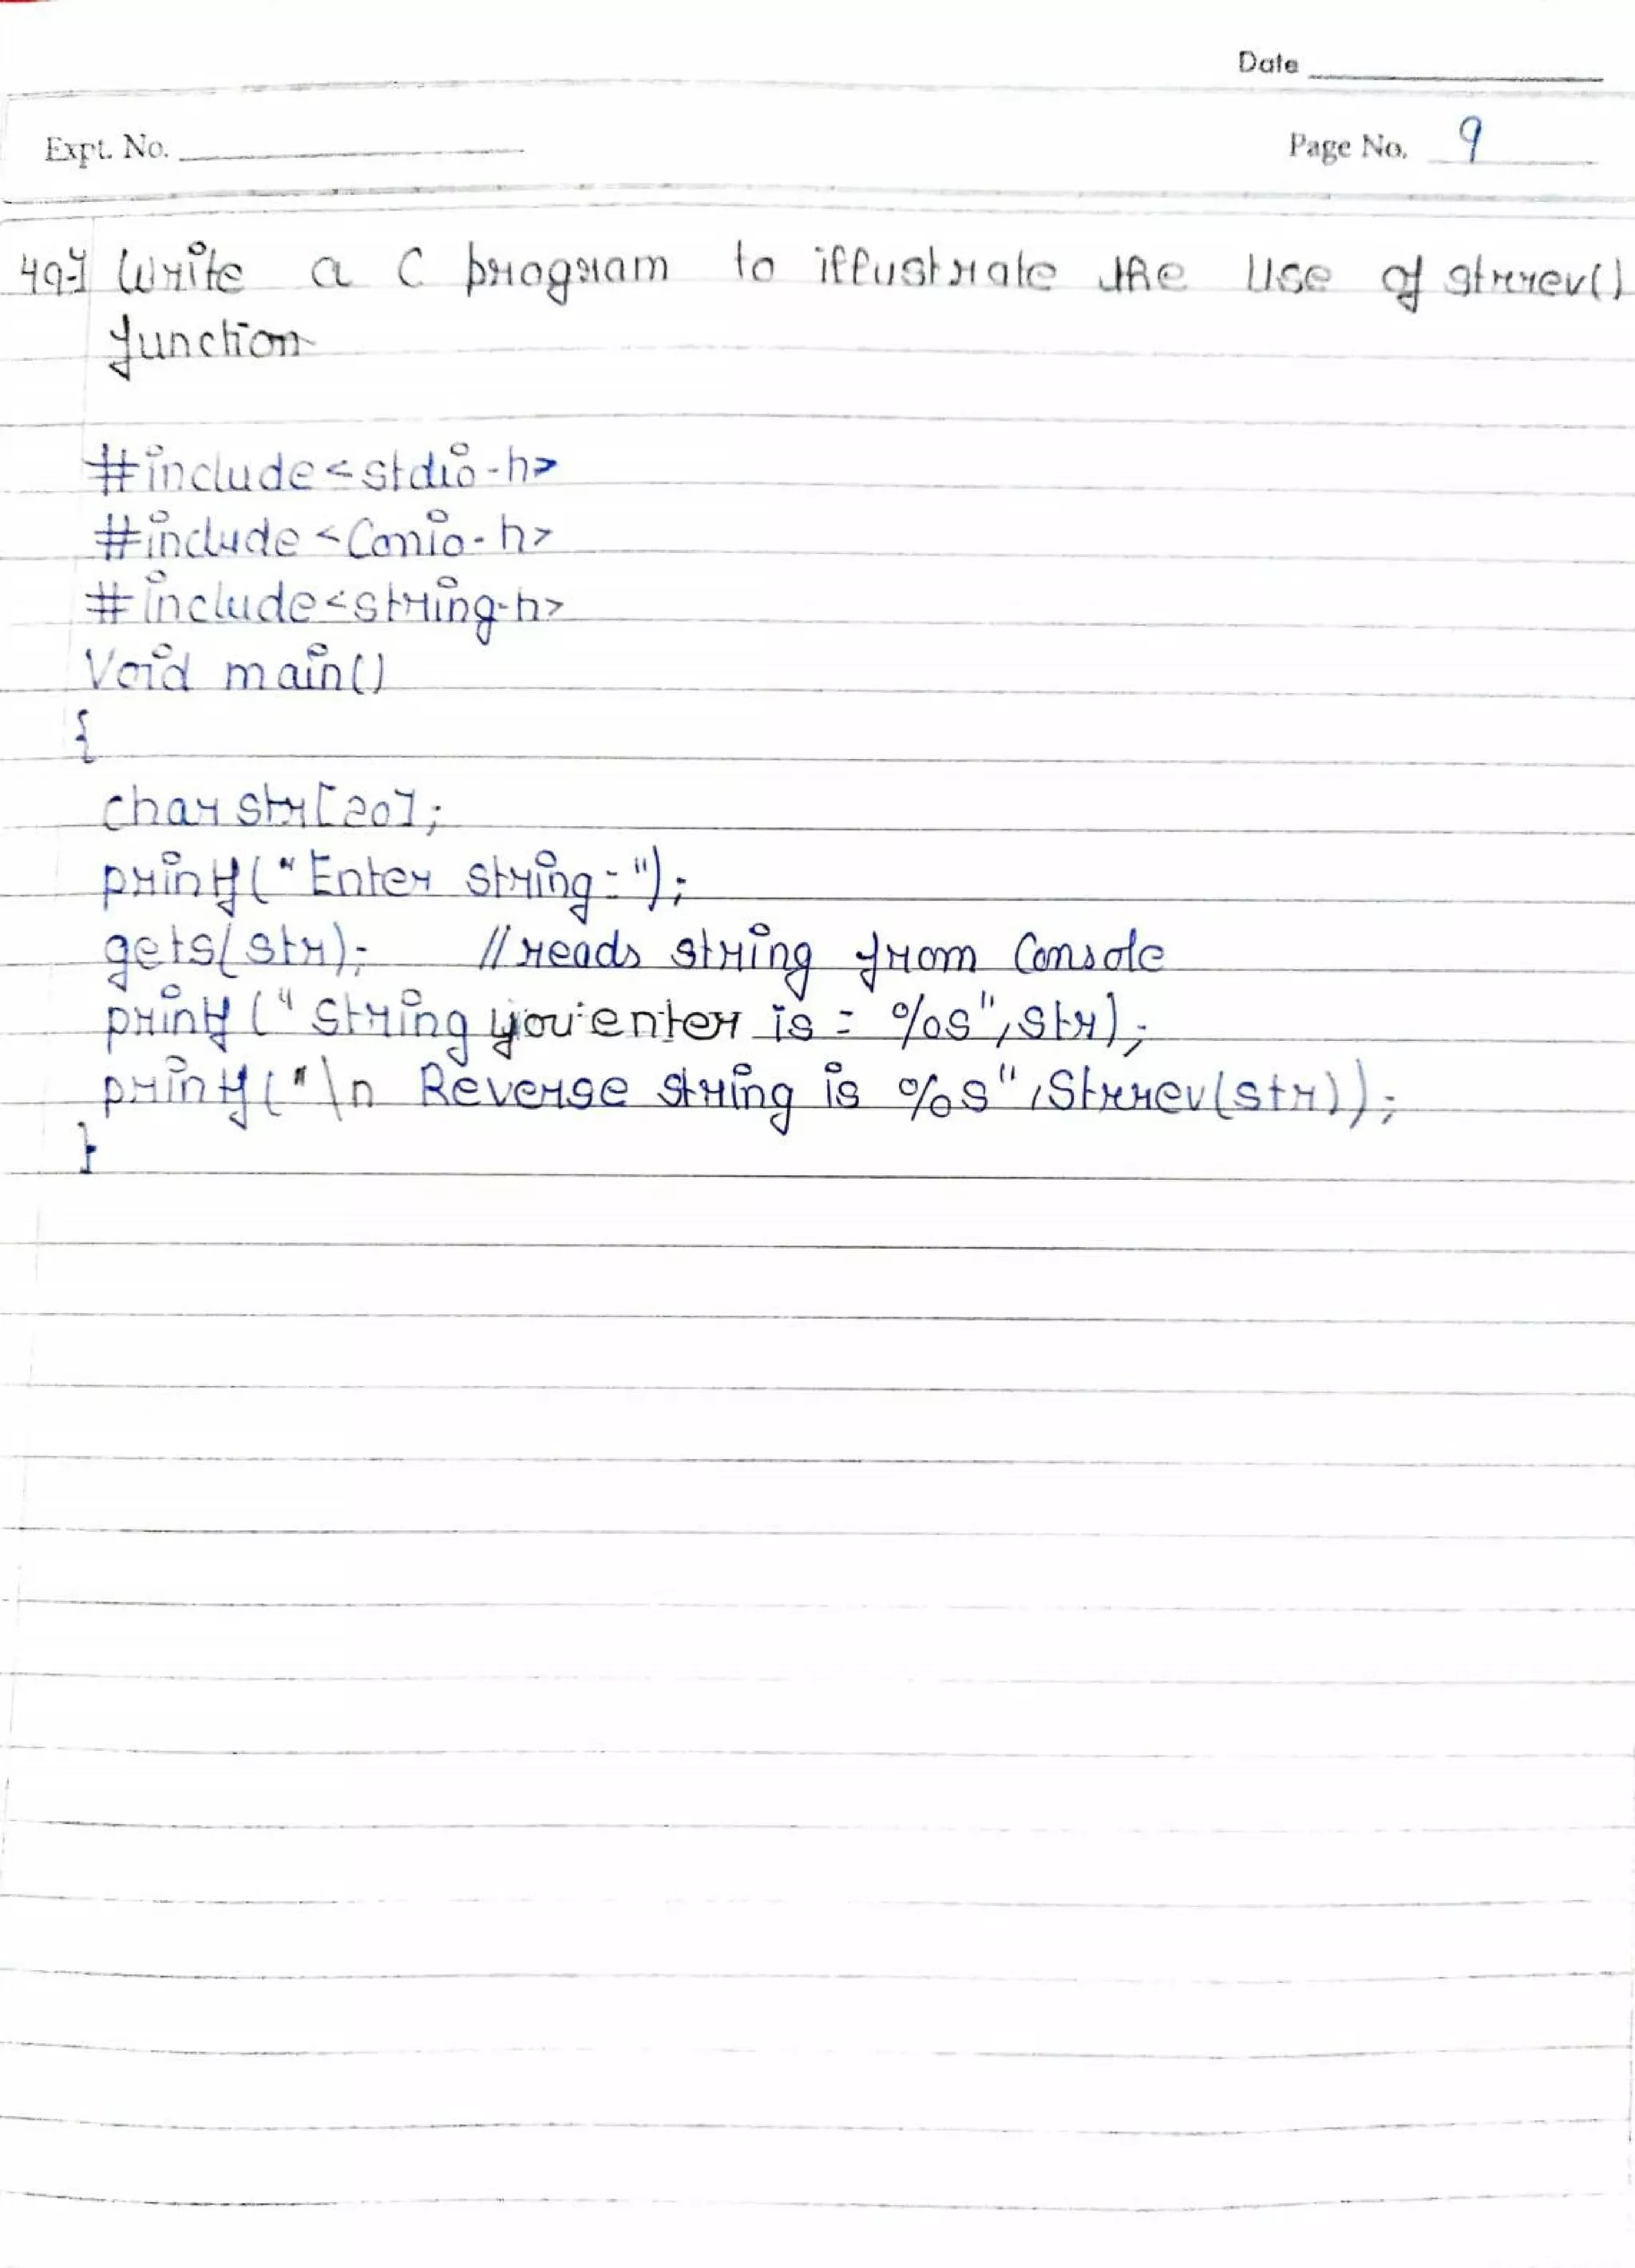 Date
Expt. No.
Page No. 9
49-] Write a C program to illustrate the Use of strrev()
function
#include<stdio.h>
#include <Conio.h>
#include<string.h>
Void main()
{
char str[20];
printf("Enter string: ");
gets(str); // reads string from Console
printf ("String you enter is : %s", str);
printf("\n Reverse string is %s", Strrev(str));
}